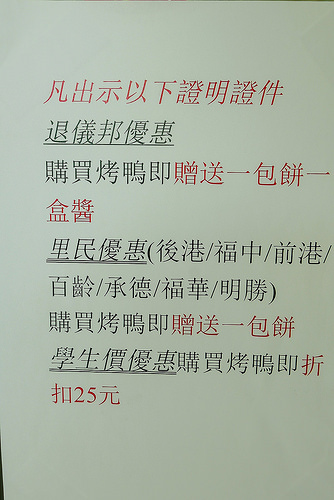 凡出示以下證明證件
退儀邦優惠
購買烤鴨即贈送一包餅一
盒醬
里民優惠(後港/福中/前港/
百齡/承德/福華/明勝)
購買烤鴨即贈送一包餅
學生價優惠購買烤鴨即折
扣25元